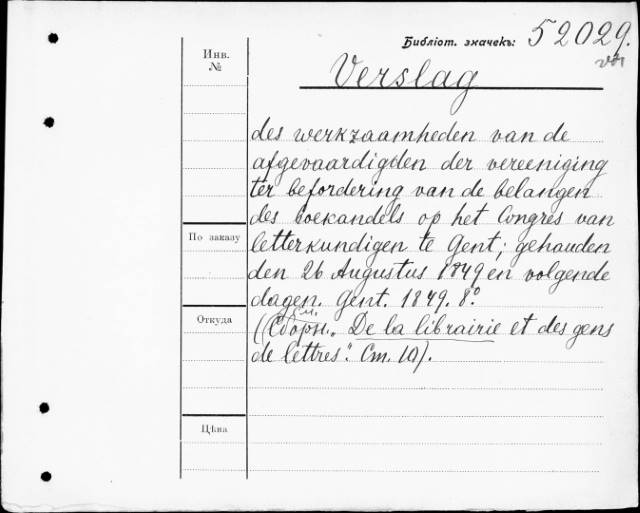 Библіот. значекъ: 52029.
Инв. №
Verslag
des werkzaamheden van de
afgevaardigden der vereeniging
ter befordering van de belangen
des boekandels op het Congres van
По заказу
letterkundigen te Gent; gehauden
den 26 Augustus 1849 en volgende
dagen. Gent. 1849. 8º
Откуда
(См. Сборн. „De la librairie et des gens
de lettres". Ст. 10).
Цѣна